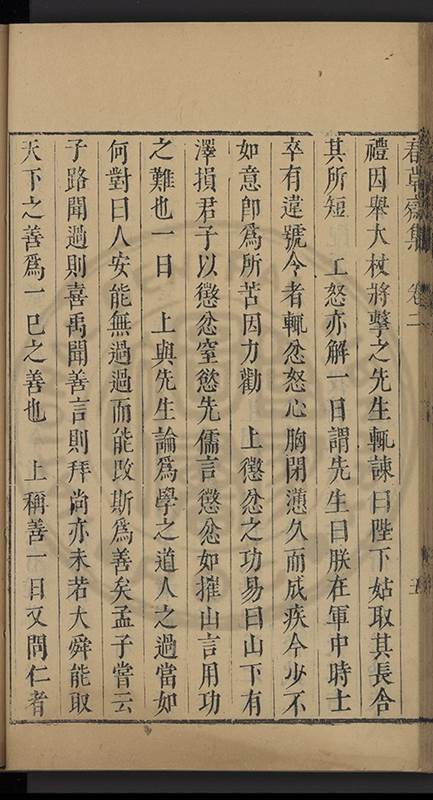 春草齋集 卷二 五
禮因舉大杖將擊之先生輒諫曰陛下姑取其長舍
其所短 上怒亦解一日謂先生曰朕在軍中時士
卒有違號令者輒忿怒心胸閉懣久而成疾今少不
如意卽爲所苦因力勸 上懲忿之功易曰山下有
澤損君子以懲忿窒慾先儒言懲忿如摧山言用功
之難也一日 上與先生論爲學之道人之過當如
何對曰人安能無過過而能改斯爲善矣孟子嘗云
子路聞過則喜禹聞善言則拜尚亦未若大舜能取
天下之善爲一已之善也 上稱善一日又問仁者